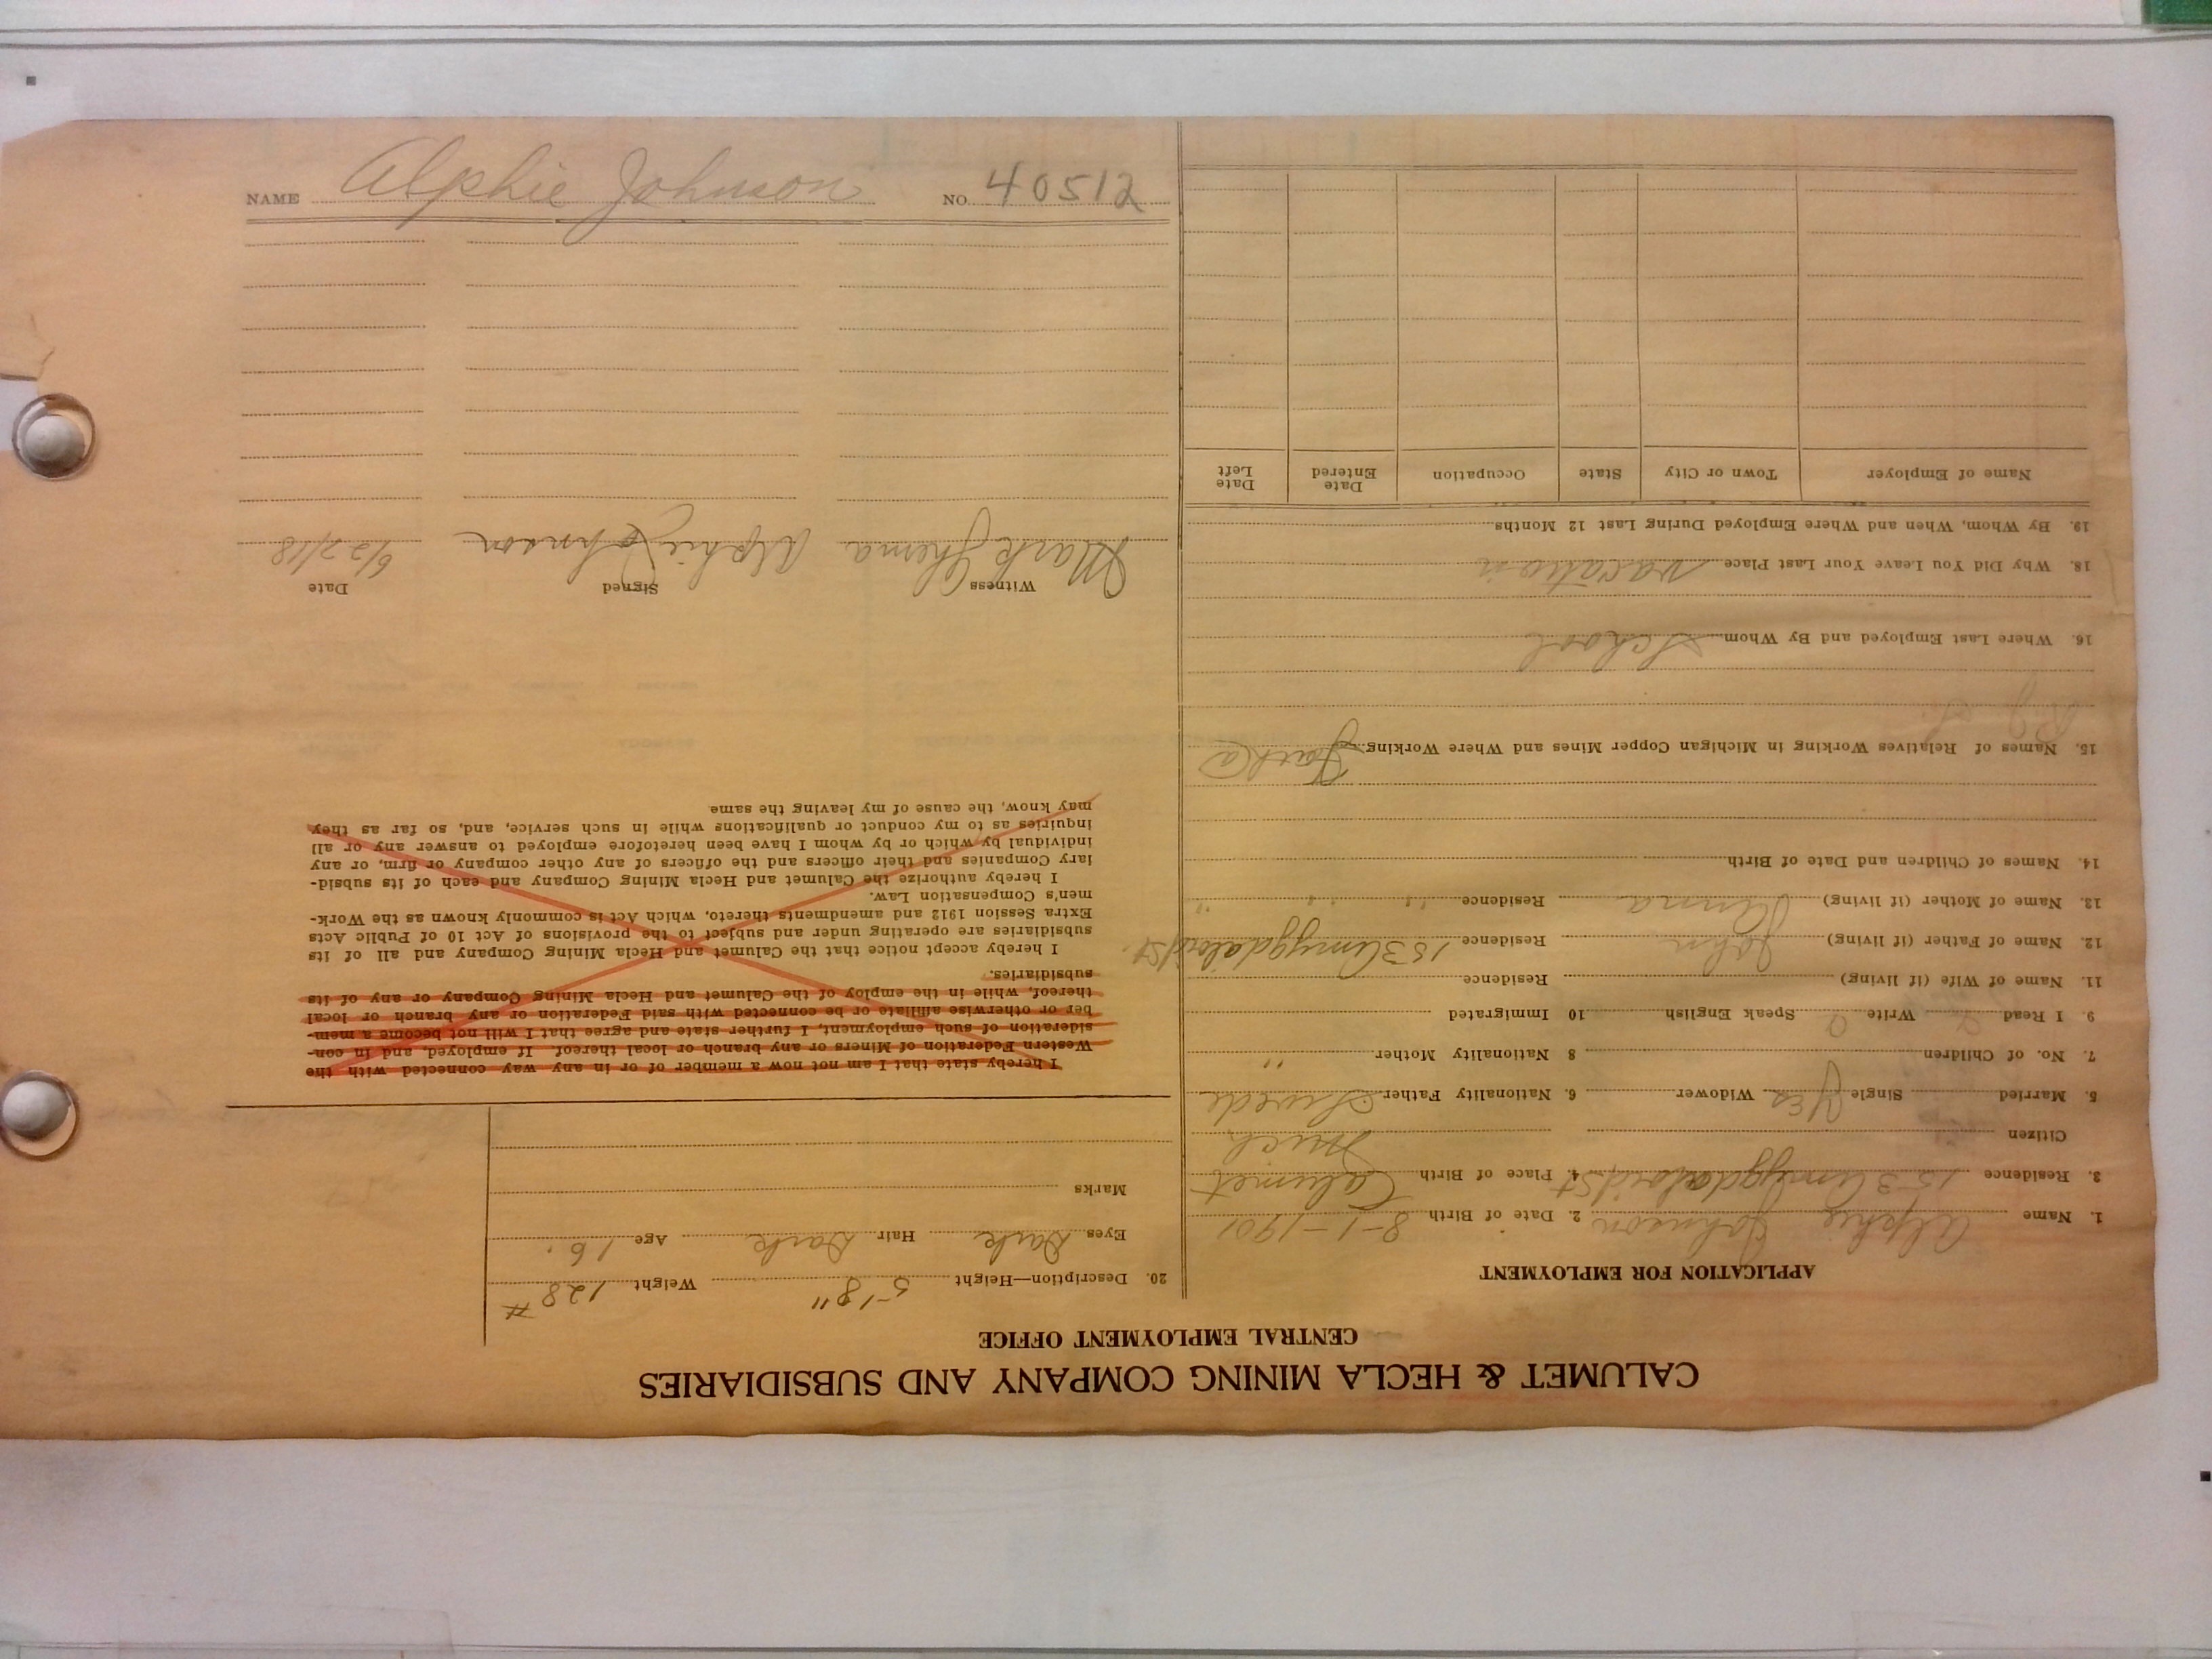 NAME Alphie Johnson NO. 40512
CALUMET & HECLA MINING COMPANY AND SUBSIDIARIES
CENTRAL EMPLOYMENT OFFICE
APPLICATION FOR EMPLOYMENT
1. Name Alphie Johnson 2. Date of Birth 8-1-1901
3. Residence 153 Amygdaloid St 4. Place of Birth Calumet
Citizen Mich
5. Married Single Yes Widower 6. Nationality Father Swede
7. No. of Children 8 Nationality Mother " "
9. I Read Write Speak English 10 Immigrated
11. Name of Wife (if living) Residence
12. Name of Father (if living) John Residence 153 Amygdaloid St.
13. Name of Mother (if living) Anna Residence " " "
14. Names of Children and Date of Birth
15. Names of Relatives Working in Michigan Copper Mines and Where Working
16. Where Last Employed and By Whom School
18. Why Did You Leave Your Last Place vacation
19. By Whom, When and Where Employed During Last 12 Months
Name of Employer Town or City State Occupation Date Entered Date Left
20. Description—Height 5'8" Weight 128 #
Eyes Dark Hair Dark Age 16.
Marks
I hereby state that I am not now a member of or in any way connected with the
Western Federation of Miners or any branch or local thereof. If employed, and in con-
sideration of such employment, I further state and agree that I will not become a mem-
ber or otherwise affiliate or be connected with said Federation or any branch or local
thereof, while in the employ of the Calumet and Hecla Mining Company or any of its
subsidiaries.
I hereby accept notice that the Calumet and Hecla Mining Company and all of its
subsidiaries are operating under and subject to the provisions of Act 10 of Public Acts
Extra Session 1912 and amendments thereto, which Act is commonly known as the Work-
men's Compensation Law.
I hereby authorize the Calumet and Hecla Mining Company and each of its subsid-
iary Companies and their officers and the officers of any other company or firm, or any
individual by which or by whom I have been heretofore employed to answer any or all
inquiries as to my conduct or qualifications while in such service, and, so far as they
may know, the cause of my leaving the same
Witness Signed Date
Mark Alphie Johnson 6/27/18